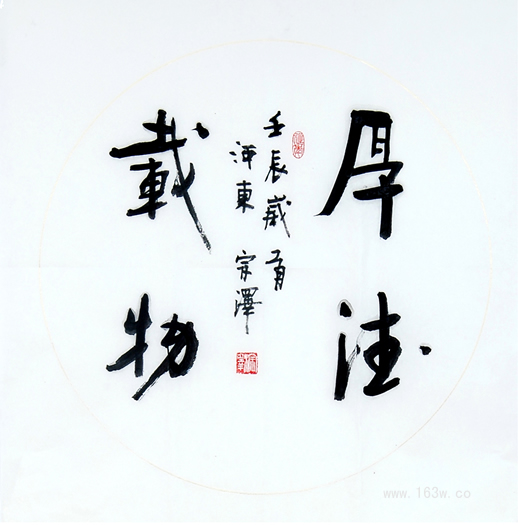 厚德
載物
壬辰歲
河東 宗澤
www.163w.co